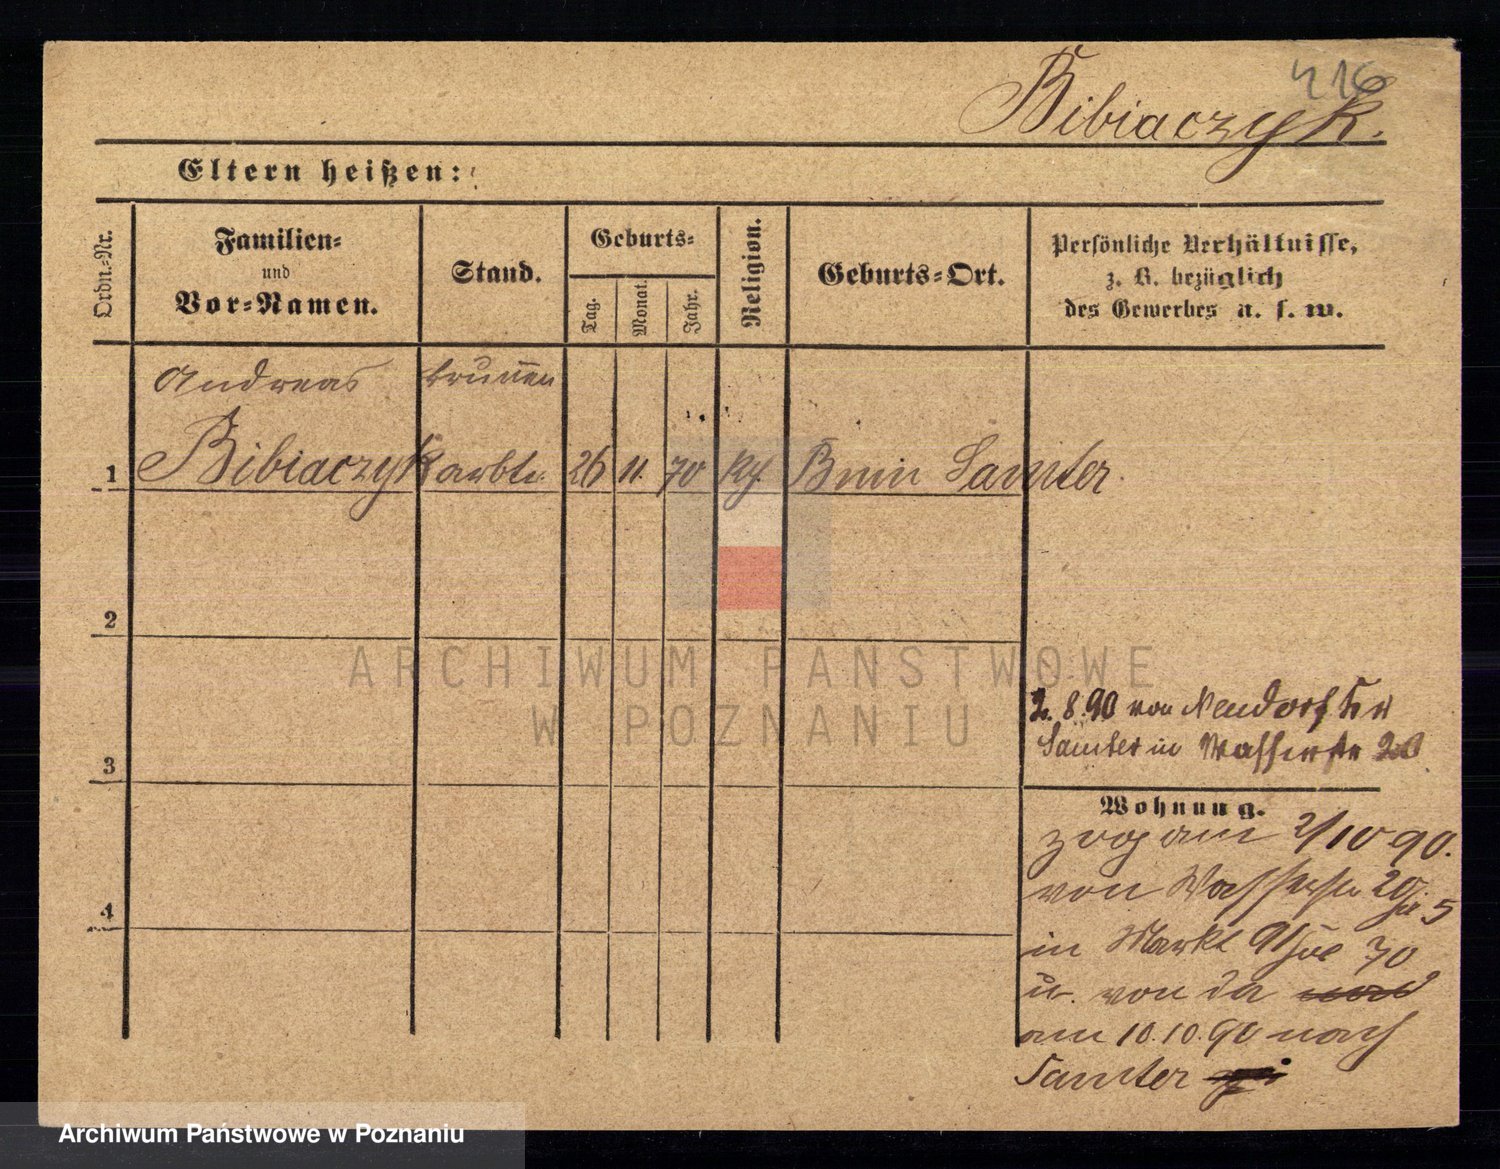 416
Bibiaczyk.
Eltern heißen:
Ordn.-Nr.
Familien-
und
Vor-Namen.
Stand.
Geburts-
Tag.
Monat.
Jahr.
Religion.
Geburts-Ort.
Persönliche Verhältnisse,
z. B. bezüglich
des Gewerbes u. s. w.
Andreas
1 Bibiaczyk arbtr. 26 11. 70 Bnin Samter.
2
3
4
2. 8. 90 von Neudorf
Samter in Wasserstr
Wohnung.
zog am 2/10 90.
von Wasserstr
in Markt 70
u. von da
am 10.10.90 nach
Samter
ARCHIWUM PAŃSTWOWE
W POZNANIU
Archiwum Państwowe w Poznaniu